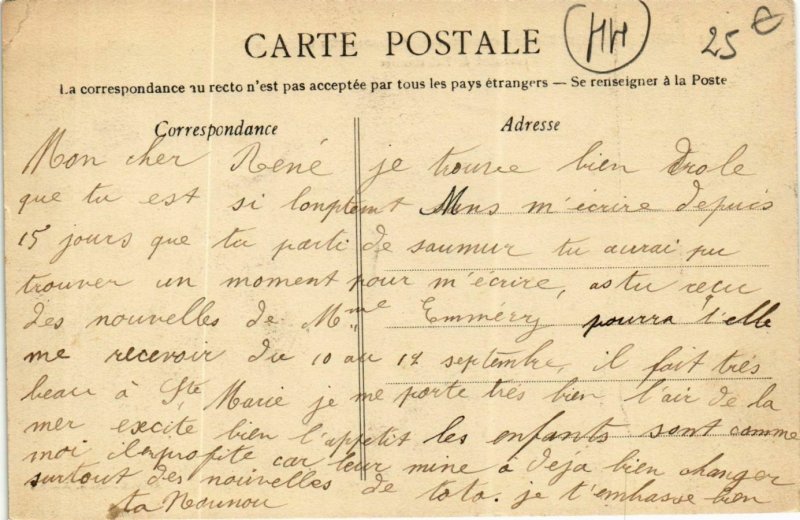 HH
25
CARTE POSTALE
La correspondance au recto n'est pas acceptée par tous les pays étrangers — Se renseigner à la Poste
Correspondance
Adresse
Mon cher René je trouve bien drole
que tu est si lonptemt sans m'écrire depuis
15 jours que ta parti de saumur tu aurai pu
trouver un moment pour m'écrire, as tu recu
des nouvelles de Mme Emmérry pourra t'elle
me recevoir du 10 au 12 septembre, il fait trés
beau à Ste Marie je me porte trés bien l'air de la
mer excite bien l'appétit les enfants sont comme
moi il profite car leur mine à déja bien changer
surtout des nouvelles de toto. je t'embrasse bien
ta Nounou